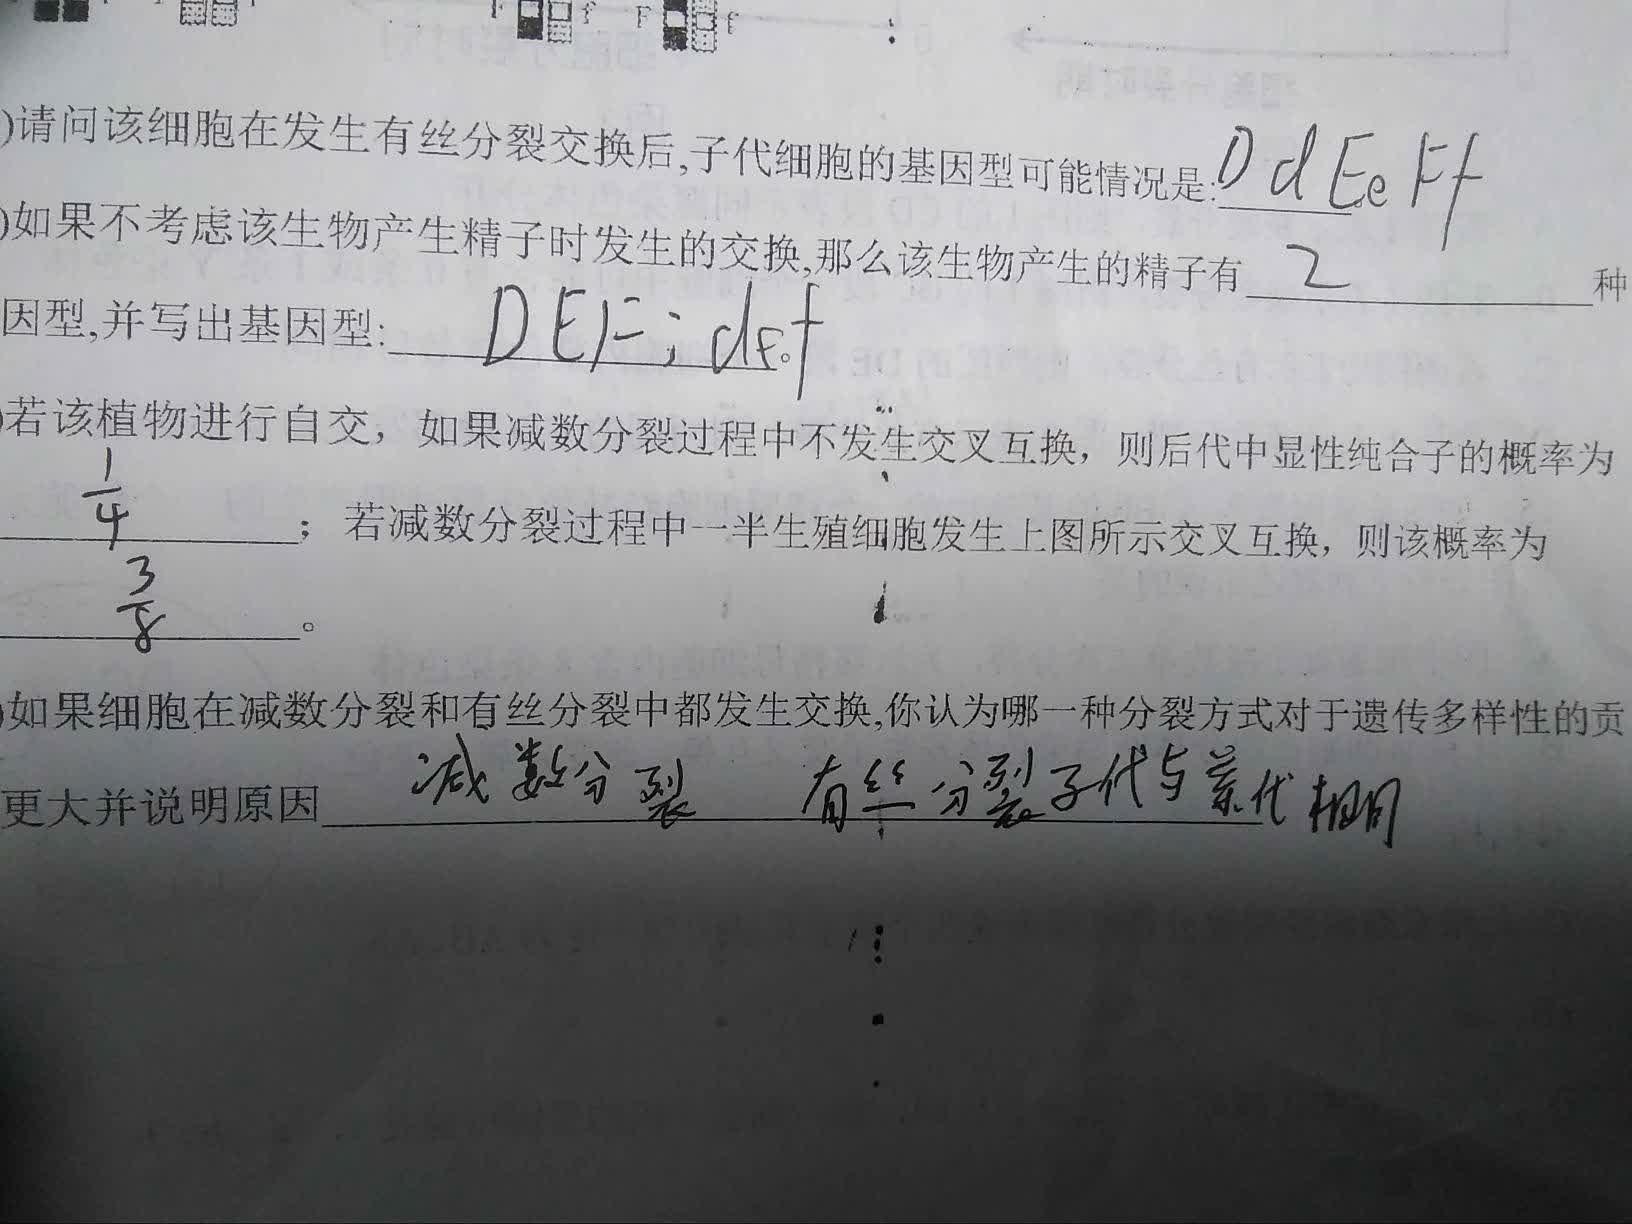 F f F f
)请问该细胞在发生有丝分裂交换后,子代细胞的基因型可能情况是: DdEeFf
)如果不考虑该生物产生精子时发生的交换,那么该生物产生的精子有 2 种
因型,并写出基因型: DEF; def
)若该植物进行自交，如果减数分裂过程中不发生交叉互换，则后代中显性纯合子的概率为
1/4 ；若减数分裂过程中一半生殖细胞发生上图所示交叉互换，则该概率为
3/8 。
)如果细胞在减数分裂和有丝分裂中都发生交换,你认为哪一种分裂方式对于遗传多样性的贡
更大并说明原因 减数分裂 有丝分裂子代与亲代相同